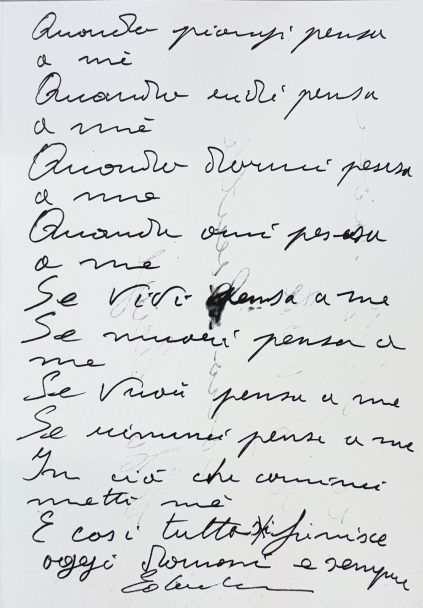 Quando piangi pensa
a mè
Quando ridi pensa
a mè
Quando dormi pensa
a me
Quando ami pensa
a me
Se vivi pensa a me
Se muori pensa a
me
Se vuoi pensa a me
Se rinunci pensa a me
In ciò che cominci
metti mè
E così tutto finisce
oggi domani e sempre